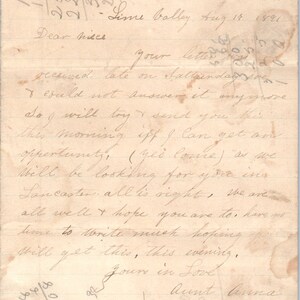 Lime Valley Aug 18 189
Dear niece
Your letter
received late on Saturday
& could not answer it any more
so I will try & send you this
this morning iff I can get an
opportunity, (yes Come) as we
Will be looking for you in
Lancaster all is right, We are
all well & hope you are do. have no
time to write much hoping
Will get this, this evening.
Yours in Love
Aunt Anna